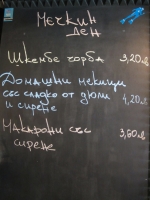 Мечкин
ден
Шкембе чорба 3,20лв
Домашни мекици
със сладко от дюли
и сирене 4,20лв
Макарони със 3,60лв
сирене